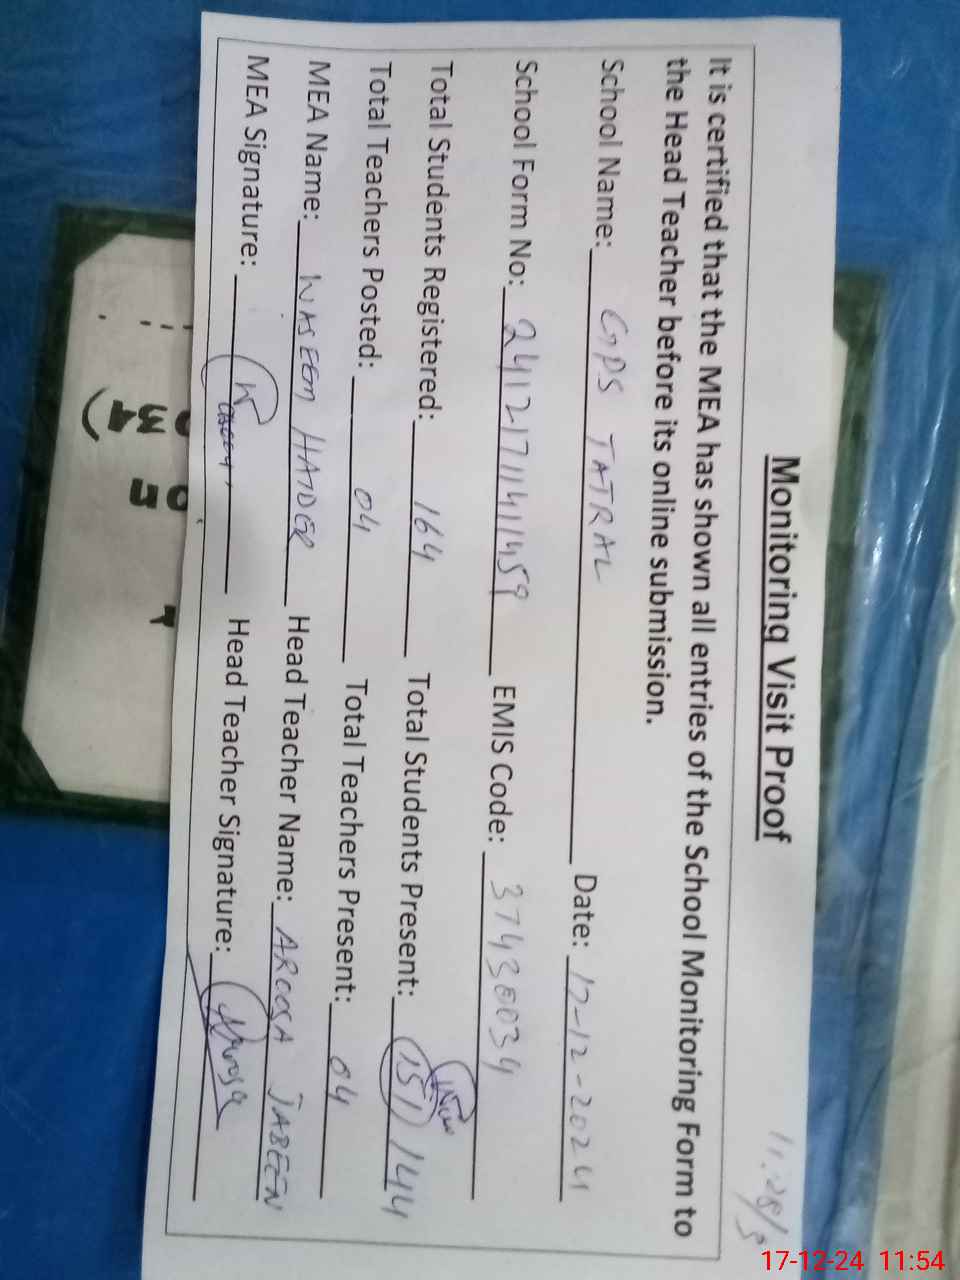 Monitoring Visit Proof
It is certified that the MEA has shown all entries of the School Monitoring Form to
the Head Teacher before its online submission.
School Name: GPS TATRAL Date: 17-12-2024
School Form No: 24121711411459 EMIS Code: 37430034
Total Students Registered: 164 Total Students Present: 151 144
Total Teachers Posted: 04 Total Teachers Present: 04
MEA Name: WASEEM HAIDER Head Teacher Name: AROOSA JABEEN
MEA Signature: Waseem Head Teacher Signature: Aroosa
17-12-24 11:54